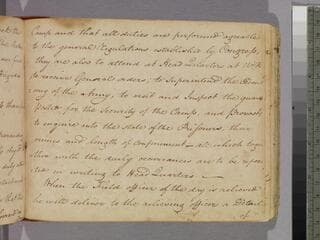 Camp and that all duties are performed agreeable
to the general Regulations established by Congress,
they are also to attend at Head Quarters at
to receive General orders; to Superintend the
omy of the Army, to visit and Inspect the guards
Posted for the Security of the Camp, and Provosts
to inquire into the state of the Prisoners, their
crimes and length of confinement - all which toge
ther with the daily occurrances are to be repor
ted in writing to Head Quarters -
When the Field officer of the day is relieved
he will deliver to the relieving officer a Detail
of